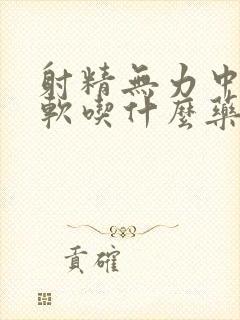 射精無力中
軟喫什麼藥
貢確